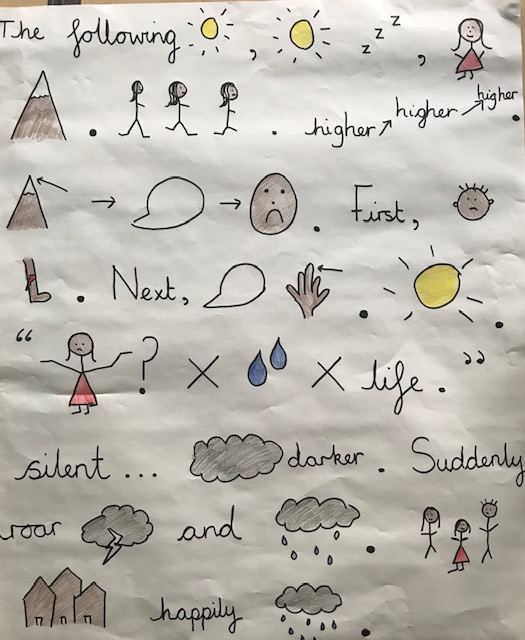 The following , z z z ,
. . higher higher higher .
. First,
. Next, . .
" ? X X life . "
silent ... darker . Suddenly
roar and .
happily .